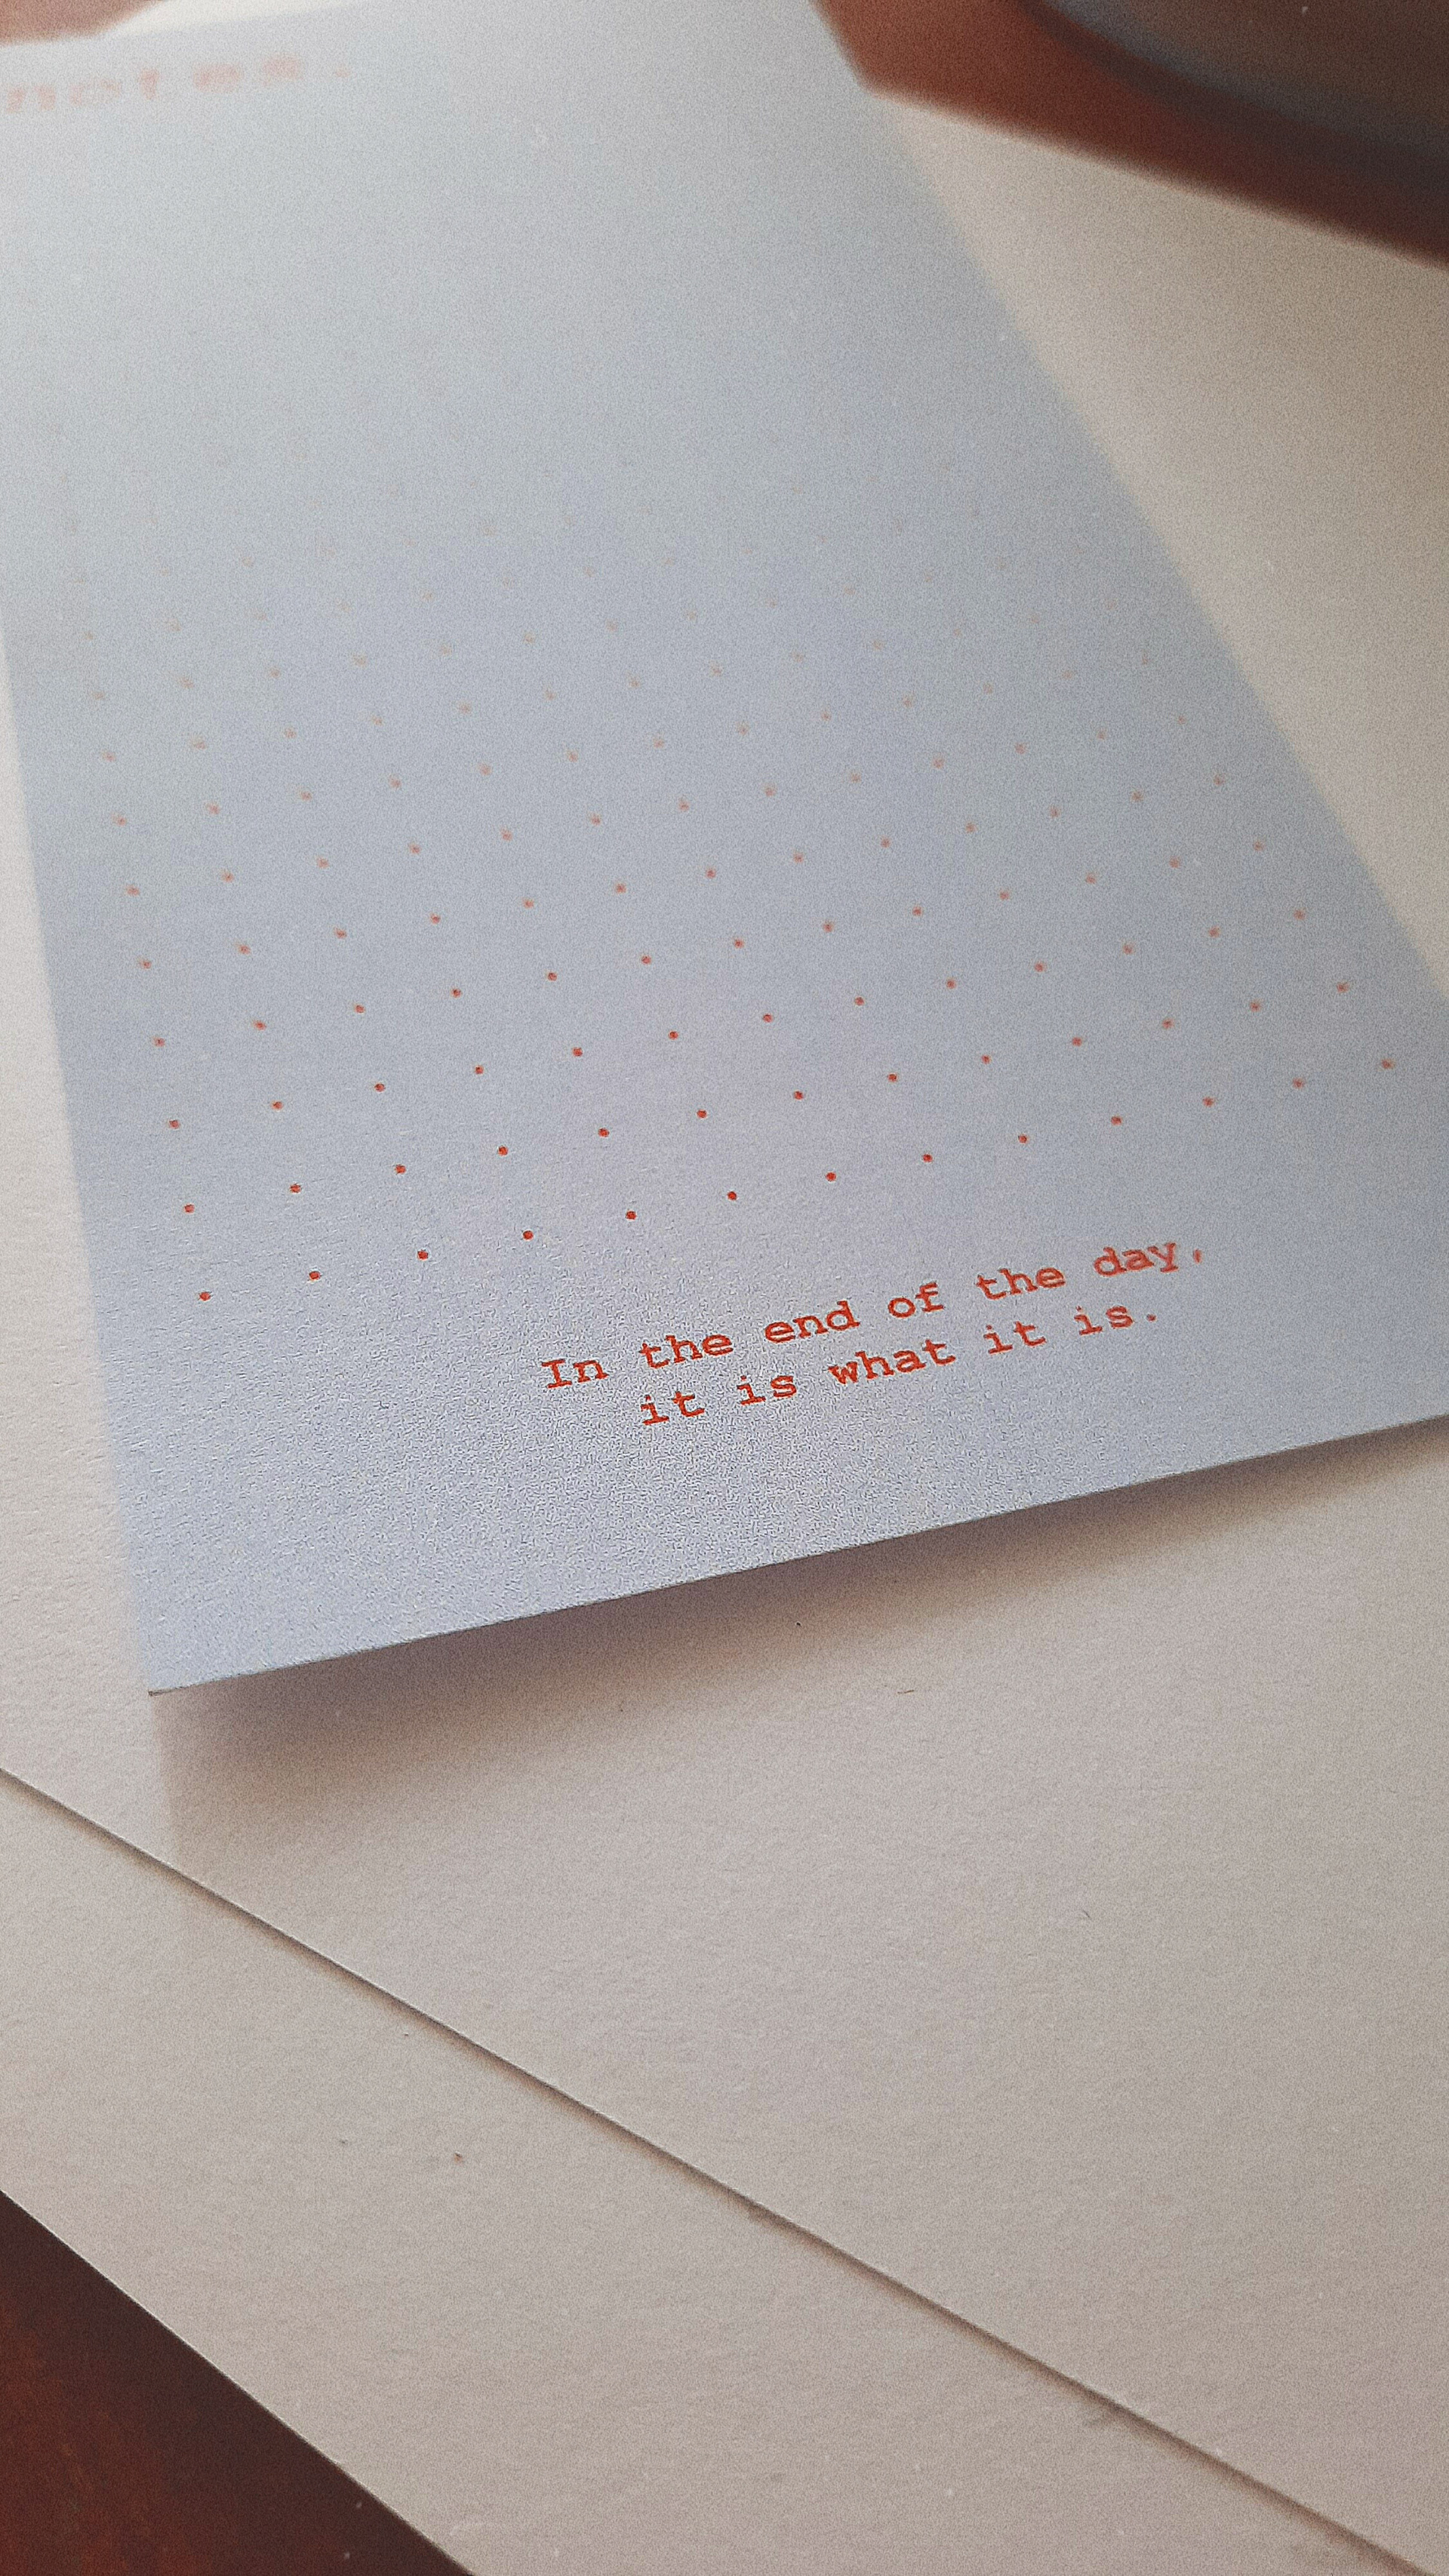 notes.
In the end of the day,
it is what it is.